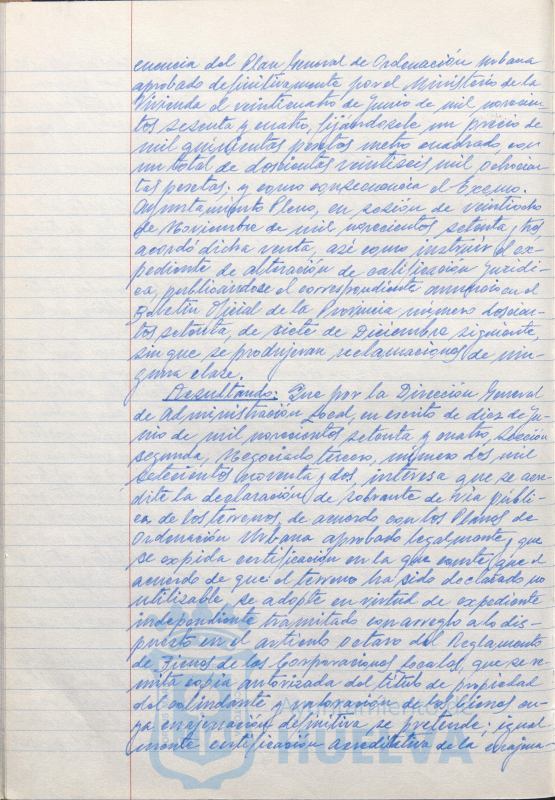 cuencia del Plan General de Ordenación Urbana
aprobado definitivamente por el Ministerio de la
Vivienda el veinticuatro de Junio de mil novecien-
tos sesenta y cuatro, fijándosele un precio de
mil quinientas pesetas metro cuadrado, con
un total de doscientas veintiseis mil ochocien-
tas pesetas; y como consecuencia el Excmo.
Ayuntamiento Pleno, en sesión de veintiocho
de Noviembre de mil novecientos setenta y tres
acordó dicha venta, asi como instruir el ex-
pediente de alteración de calificación juridi-
ca, publicándose el correspondiente anuncio en el
Boletín Oficial de la Provincia número doscien-
tos setenta, de siete de Diciembre siguiente,
sin que se produjeran reclamaciones de nin-
guna clase.
Resultando: Que por la Dirección General
de Administración Local, en escrito de diez de Ju-
nio de mil novecientos setenta y cuatro, Sección
segunda, Negociado tercero, número dos mil
setecientos noventa y dos, interesa que se acre-
dite la declaración de sobrante de via públi-
ca de los terrenos, de acuerdo con los Planes de
Ordenación Urbana aprobado legalmente, que
se expida certificación en la que conste, que el
acuerdo de que el terreno ha sido declarado no
utilizable se adopte en virtud de expediente
independiente tramitado con arreglo a lo dis-
puesto en el artículo octavo del Reglamento
de Bienes de las Corporaciones Locales, que se re-
mita copia autorizada del titulo de propiedad
del colindante y valoración de los bienes cu-
ya enajenación definitiva se pretende; igual
mente certificación acreditativa de la
HUELVA